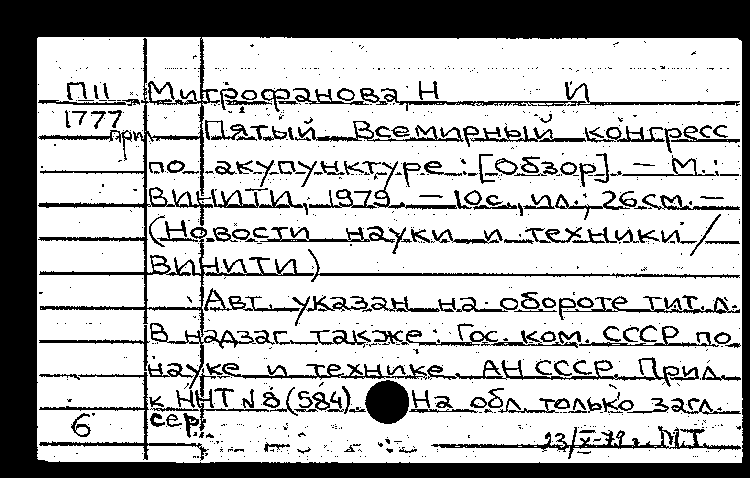 П11 Митрофанова, Н И
1777 прил Пятый Всемирный конгресс
по акупунктуре : [Обзор]. — М. :
ВИНИТИ, 1979. — 10с., ил. ; 26см. —
(Новости науки и техники /
ВИНИТИ)
Авт. указан на обороте тит. л.
В надзаг. также : Гос. ком. СССР по
науке и технике. АН СССР. Прил.
к ННТ №8 (584). На обл. только загл.
6 сер.
23/X-79 г. М.Т.